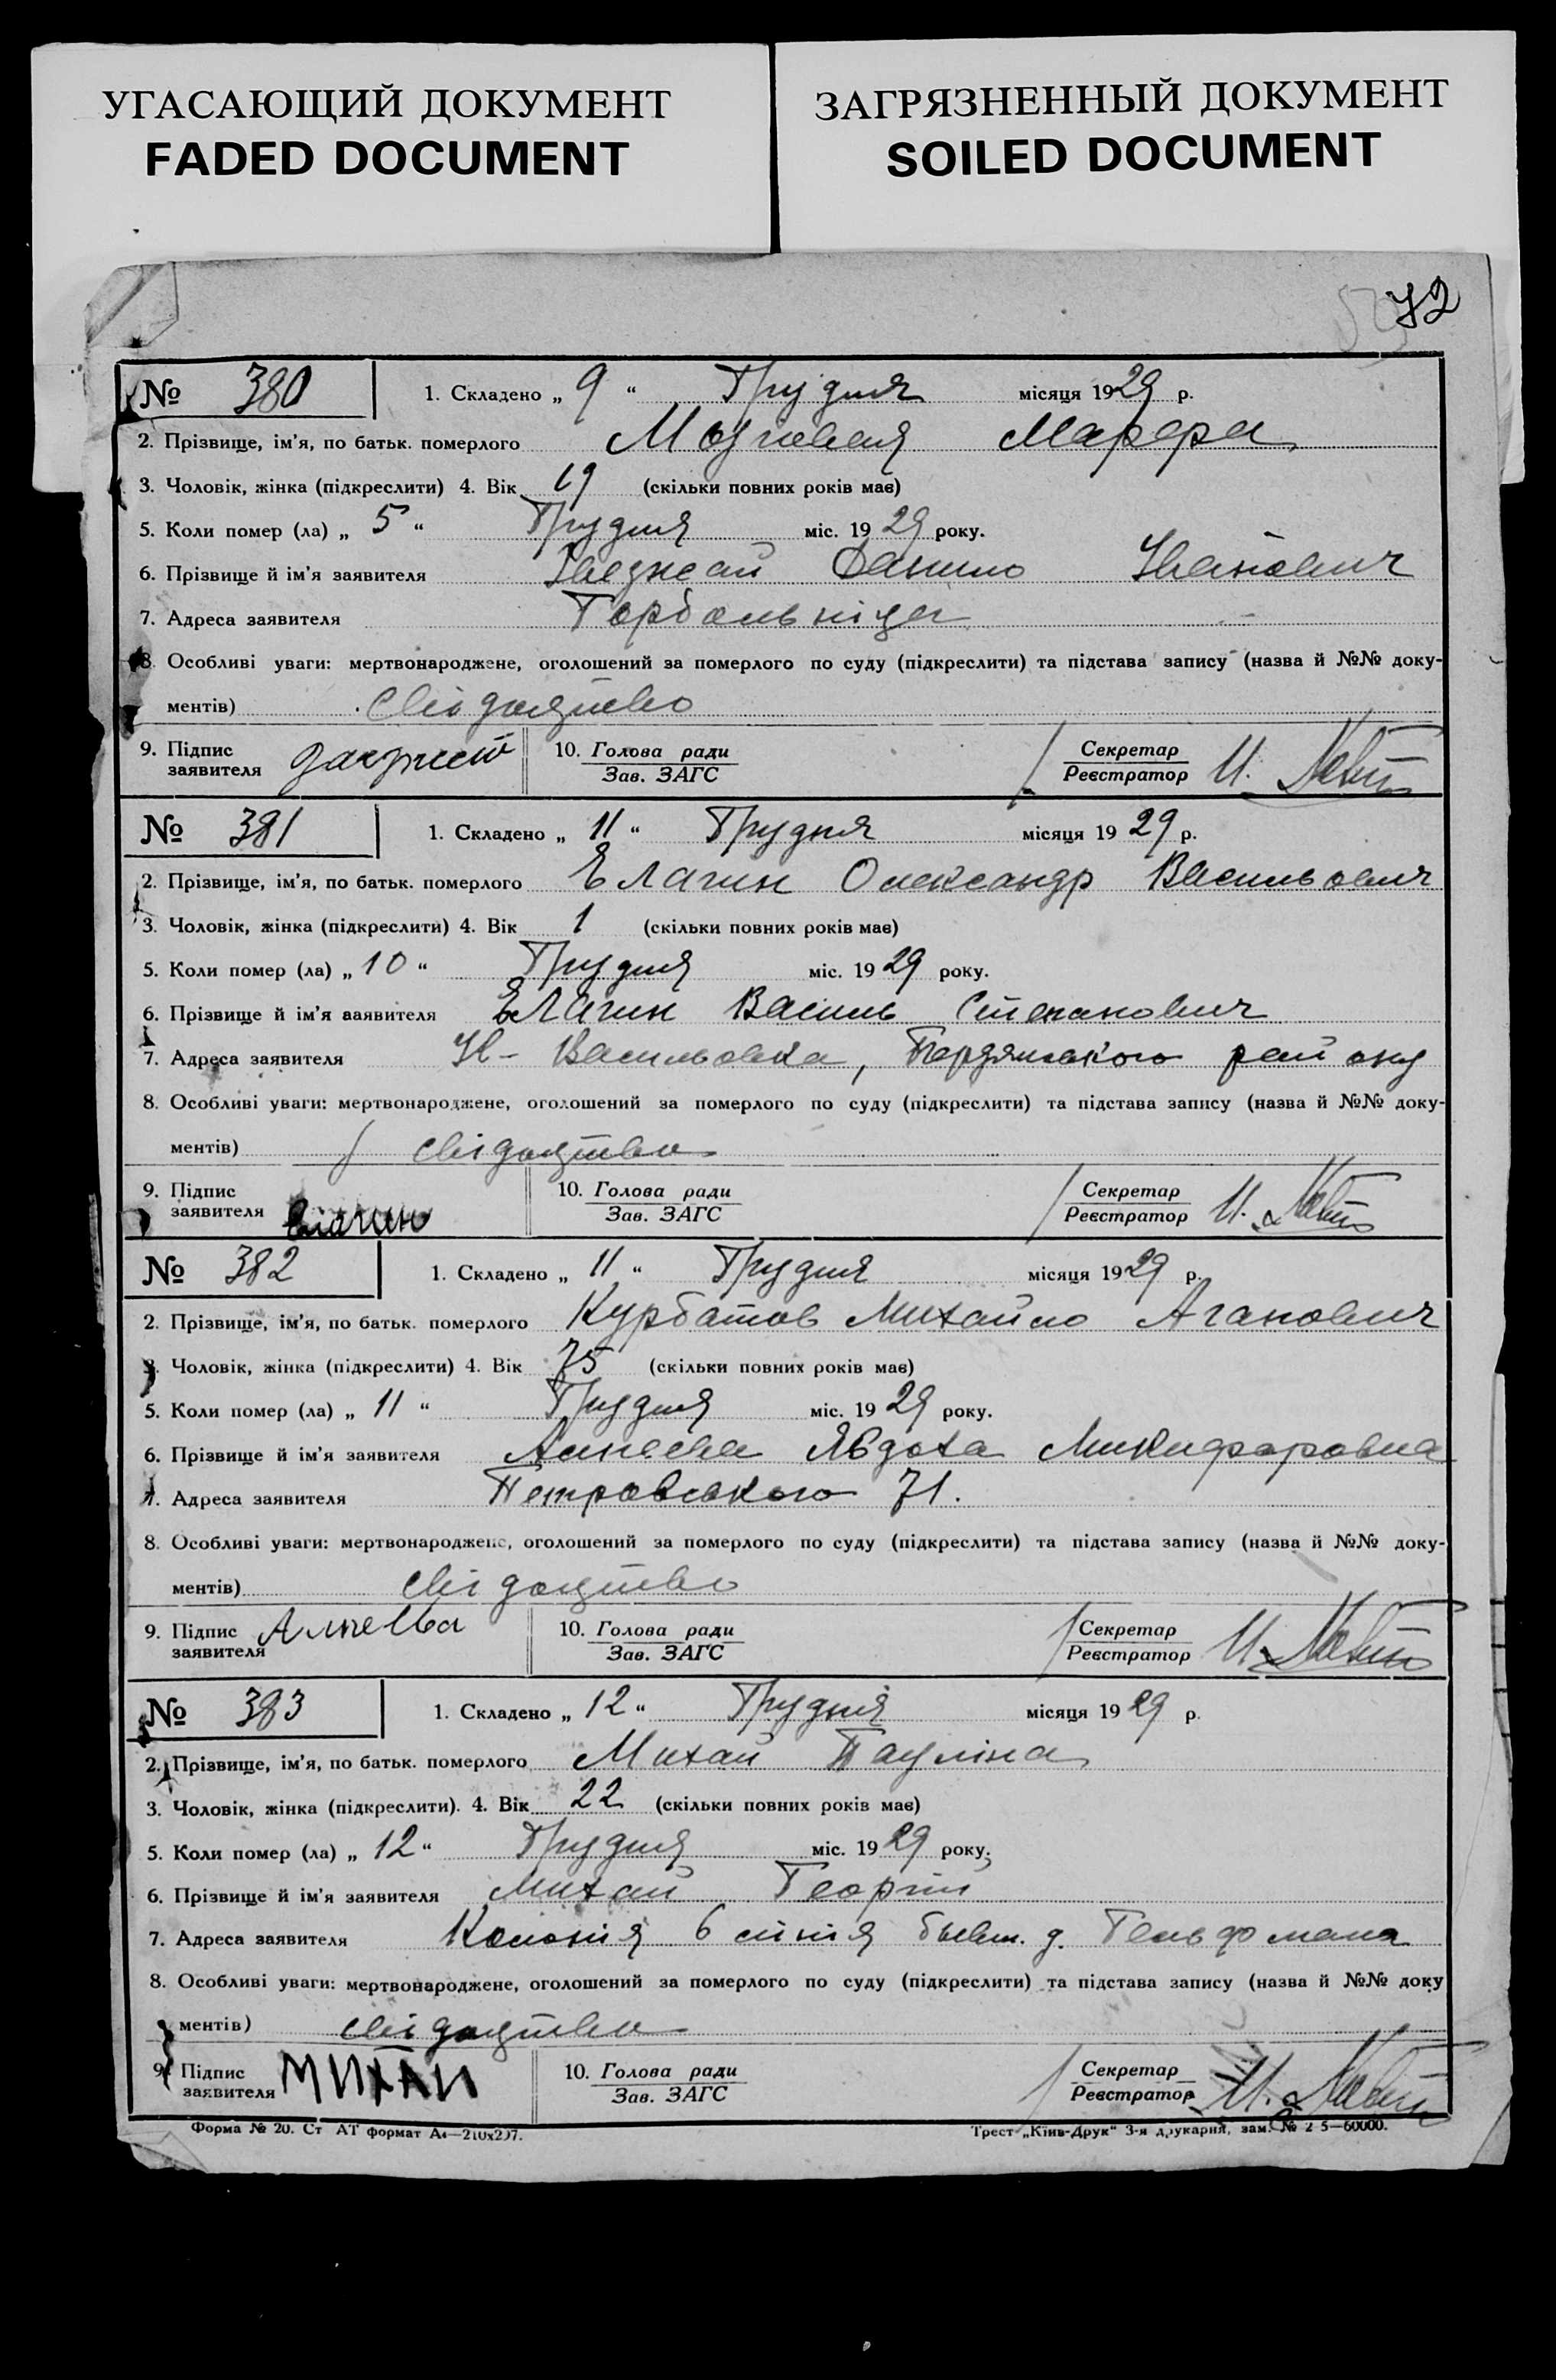 УГАСАЮЩИЙ ДОКУМЕНТ
FADED DOCUMENT
ЗАГРЯЗНЕННЫЙ ДОКУМЕНТ
SOILED DOCUMENT
72
№ 380 1. Складено „ 9 “ Грудня місяця 1929 р.
2. Прізвище, ім'я, по батьк. померлого Марфа
3. Чоловік, жінка (підкреслити) 4. Вік 19 (скільки повних років має)
5. Коли помер (ла) „ 5 “ Грудня міс. 1929 року.
6. Прізвище й ім'я заявителя Данило Іванович
7. Адреса заявителя Горбольніца
8. Особливі уваги: мертвонароджене, оголошений за померлого по суду (підкреслити) та підстава запису (назва й №№ доку-
ментів) свідоцтво
9. Підпис заявителя 10. Голова ради Зав. ЗАГС Секретар Реєстратор
№ 381 1. Складено „ 11 “ Грудня місяця 1929 р.
2. Прізвище, ім'я, по батьк. померлого Елагин Олександр Васильович
3. Чоловік, жінка (підкреслити) 4. Вік 1 (скільки повних років має)
5. Коли помер (ла) „ 10 “ Грудня міс. 1929 року.
6. Прізвище й ім'я заявителя Елагин Василь Степанович
7. Адреса заявителя Н-Васильовка, Бердянського району
8. Особливі уваги: мертвонароджене, оголошений за померлого по суду (підкреслити) та підстава запису (назва й №№ доку-
ментів) свідоцтво
9. Підпис заявителя Елагин 10. Голова ради Зав. ЗАГС Секретар Реєстратор
№ 382 1. Складено „ 11 “ Грудня місяця 1929 р.
2. Прізвище, ім'я, по батьк. померлого Курбатов Михайло Аганович
3. Чоловік, жінка (підкреслити) 4. Вік 75 (скільки повних років має)
5. Коли помер (ла) „ 11 “ Грудня міс. 1929 року.
6. Прізвище й ім'я заявителя Явдоха Микифоровна
7. Адреса заявителя Петровського 71.
8. Особливі уваги: мертвонароджене, оголошений за померлого по суду (підкреслити) та підстава запису (назва й №№ доку-
ментів) свідоцтво
9. Підпис заявителя 10. Голова ради Зав. ЗАГС Секретар Реєстратор
№ 383 1. Складено „ 12 “ Грудня місяця 1929 р.
2. Прізвище, ім'я, по батьк. померлого Михай Пауліна
3. Чоловік, жінка (підкреслити). 4. Вік 22 (скільки повних років має)
5. Коли помер (ла) „ 12 “ Грудня міс. 1929 року.
6. Прізвище й ім'я заявителя Михай Георгій
7. Адреса заявителя Колонія 6 лінія бывш. д. Гельфмана
8. Особливі уваги: мертвонароджене, оголошений за померлого по суду (підкреслити) та підстава запису (назва й №№ доку
ментів) свідоцтво
9. Підпис заявителя МИХАИ 10. Голова ради Зав. ЗАГС Секретар Реєстратор
Форма № 20. Ст АТ формат А4—210х297. Трест „Київ-Друк“ 3-я друкарня, зам. №